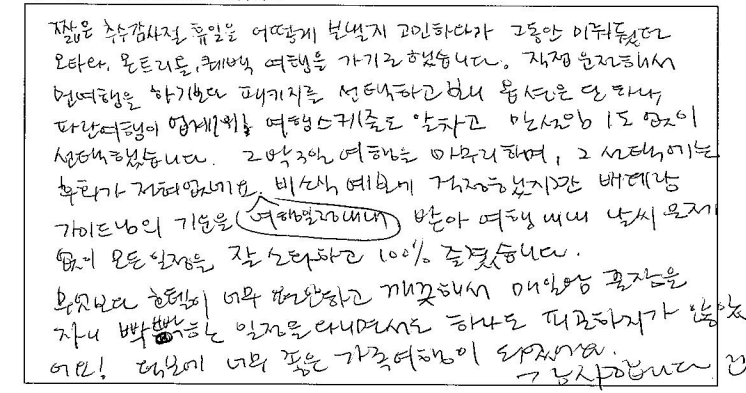 짧은 추수감사절 휴일을 어떻게 보낼지 고민하다가 그동안 미뤄뒀던
오타와, 몬트리올, 퀘벡 여행을 가기로 했습니다. 직접 운전해서
먼여행을 하기보다 패키지를 선택하고 보니 옵션은 단 하나,
파란여행이 업계1위! 여행스케줄도 알차고 망설임 1도 없이
선택했습니다. 2박3일 여행을 마무리하며, 그 선택에는
후회가 전혀없네요. 비소식 예보에 걱정했지만 베테랑
가이드님의 기운을 여행일정내내 받아 여행 내내 날씨 문제
없이 모든 일정을 잘 소화하고 100% 즐겼습니다.
무엇보다 호텔이 너무 편안하고 깨끗해서 매일밤 꿀잠을
자니 빡빡하는 일정을 다니면서도 하나도 피곤하지가 않았
어요! 덕분에 너무 좋은 가족여행이 되었네요.
감사합니다